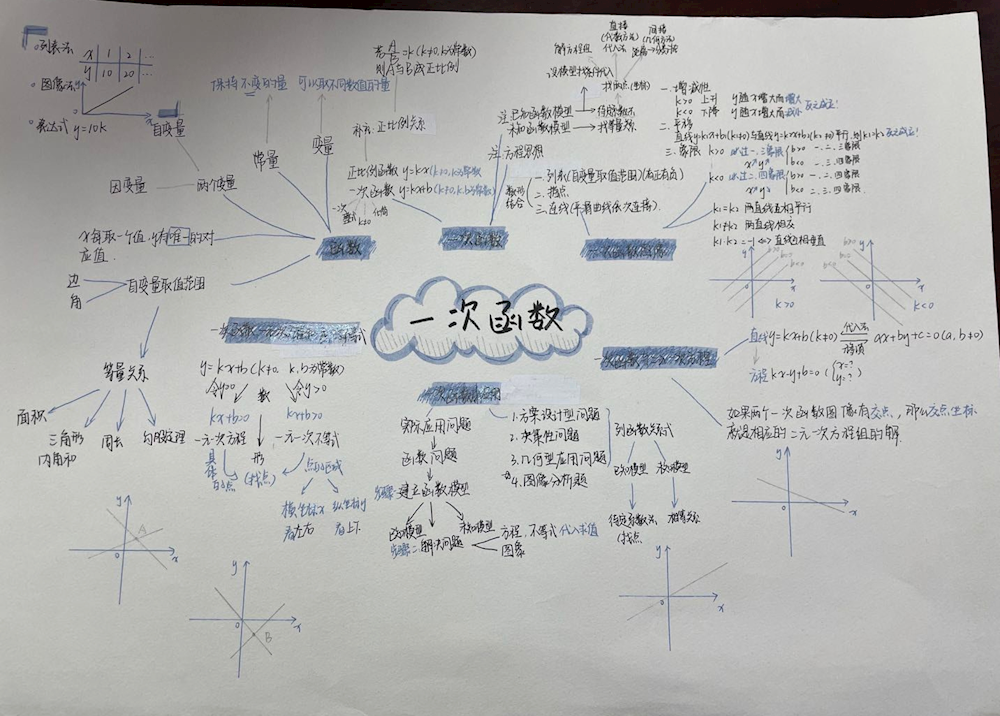 一次函数
函数
列表法
x 1 2 ...
y 10 20 ...
图像法
表达式 y=10x
自变量
因变量
两个变量
x每取一个值,y有唯一的对
应值.
边
角
自变量取值范围
等量关系
面积
三角形
内角和
周长
勾股定理
常量
保持不变的量
变量
可以取不同数值的量
若A/B=k(k≠0,k为常数)
则A与B成正比例
补充:正比例关系
正比例函数 y=kx(k≠0,k为常数)
一次函数 y=kx+b(k≠0,k.b为常数)
一次
整式
k≠0
一次函数
注:已知函数模型→待定系数法
未知函数模型→找等量关系
注:方程思想
解方程组
设模型
代入
找两点(坐标)
直接
(代数方法)
代入法
间接
(几何方法)
数形
结合
一.列表(自变量取值范围)(有正有负)
二.描点
三.连线(平滑曲线依次连接).
一.增减性
k>0 上升 y随x增大而增大
k<0 下降 y随x增大而减小 反之成立!
二.平移
直线y=k₁x+b₁(k₁≠0)与直线y=k₂x+b₂(k₂≠0)平行,则k₁=k₂ 反之成立!
三.象限 k>0 必过一.三象限 b>0 一.二.三象限
x↗y↗ b<0 一.三.四象限
k<0 必过二.四象限 b>0 一.二.四象限
b<0 二.三.四象限
k₁=k₂ 两直线互相平行
k₁≠k₂ 两直线相交
k₁·k₂=-1⇔直线互相垂直
b>0
b=0
b<0
k>0
b>0
b=0
b<0
k<0
一次函数与二元一次方程
直线y=kx+b(k≠0) 代入法 移项 ax+by+c=0(a,b≠0)
方程kx-y+b=0 (x=? y=?)
如果两个一次函数图像有交点,那么交点坐标
就是相应的二元一次方程组的解.
y=kx+b(k≠0, k.b为常数)
令y=0 数 令y>0
kx+b=0 kx+b>0
一元一次方程 一元一次不等式
具体
点
形
(找点)
点与区域
横坐标x 纵坐标y
看左右 看上下
一次函数的应用
实际应用问题
函数问题
步骤一建立函数模型
已知模型 未知模型
步骤二解决问题
方程.不等式代入求值
图象
1.方案设计型问题
2.决策性问题
3.几何型应用问题
*4.图像分析题
列函数关系式
已知模型 未知模型
待定系数法
(找点)
相等关系
y
A
0
x
y
0
B
x
y
0
x
y
0
x